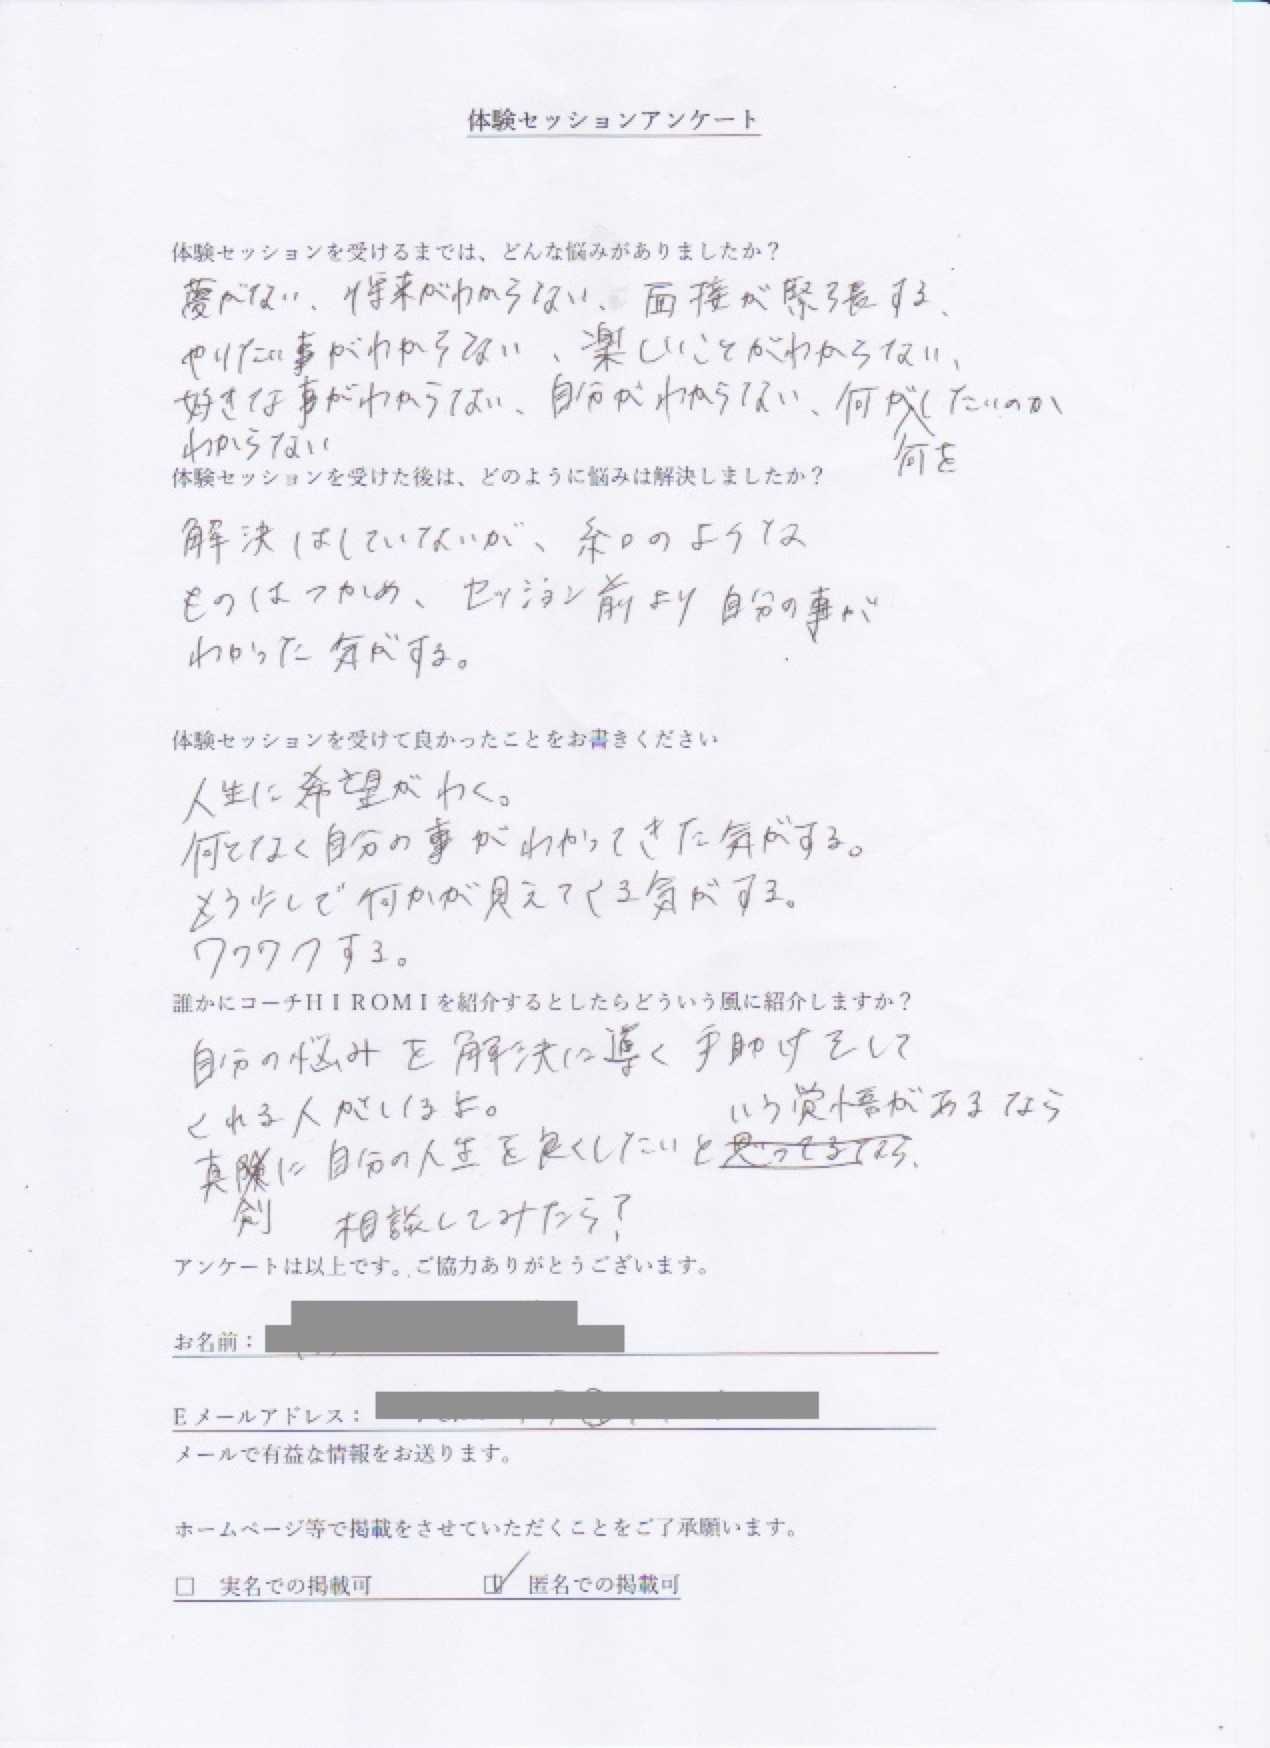 体験セッションアンケート
体験セッションを受けるまでは、どんな悩みがありましたか？
夢がない、将来がわからない、面接が緊張する、
やりたい事がわからない、楽しいことがわからない、
好きな事がわからない、自分がわからない、何がしたいのか
何を
わからない
体験セッションを受けた後は、どのように悩みは解決しましたか？
解決はしていないが、糸口のような
ものはつかめ、セッション前より自分の事が
わかった気がする。
体験セッションを受けて良かったことをお書きください
人生に希望がわく。
何となく自分の事がわかってきた気がする。
もう少しで何かが見えてくる気がする。
ワクワクする。
誰かにコーチＨＩＲＯＭＩを紹介するとしたらどういう風に紹介しますか？
自分の悩みを解決に導く手助けをして
くれる人がいるよ。
いう覚悟があるなら
真に自分の人生を良くしたいと思ってるなら、
剣
相談してみたら？
アンケートは以上です。ご協力ありがとうございます。
お名前：
Ｅメールアドレス：
メールで有益な情報をお送ります。
ホームページ等で掲載をさせていただくことをご了承願います。
□ 実名での掲載可 ☑ 匿名での掲載可